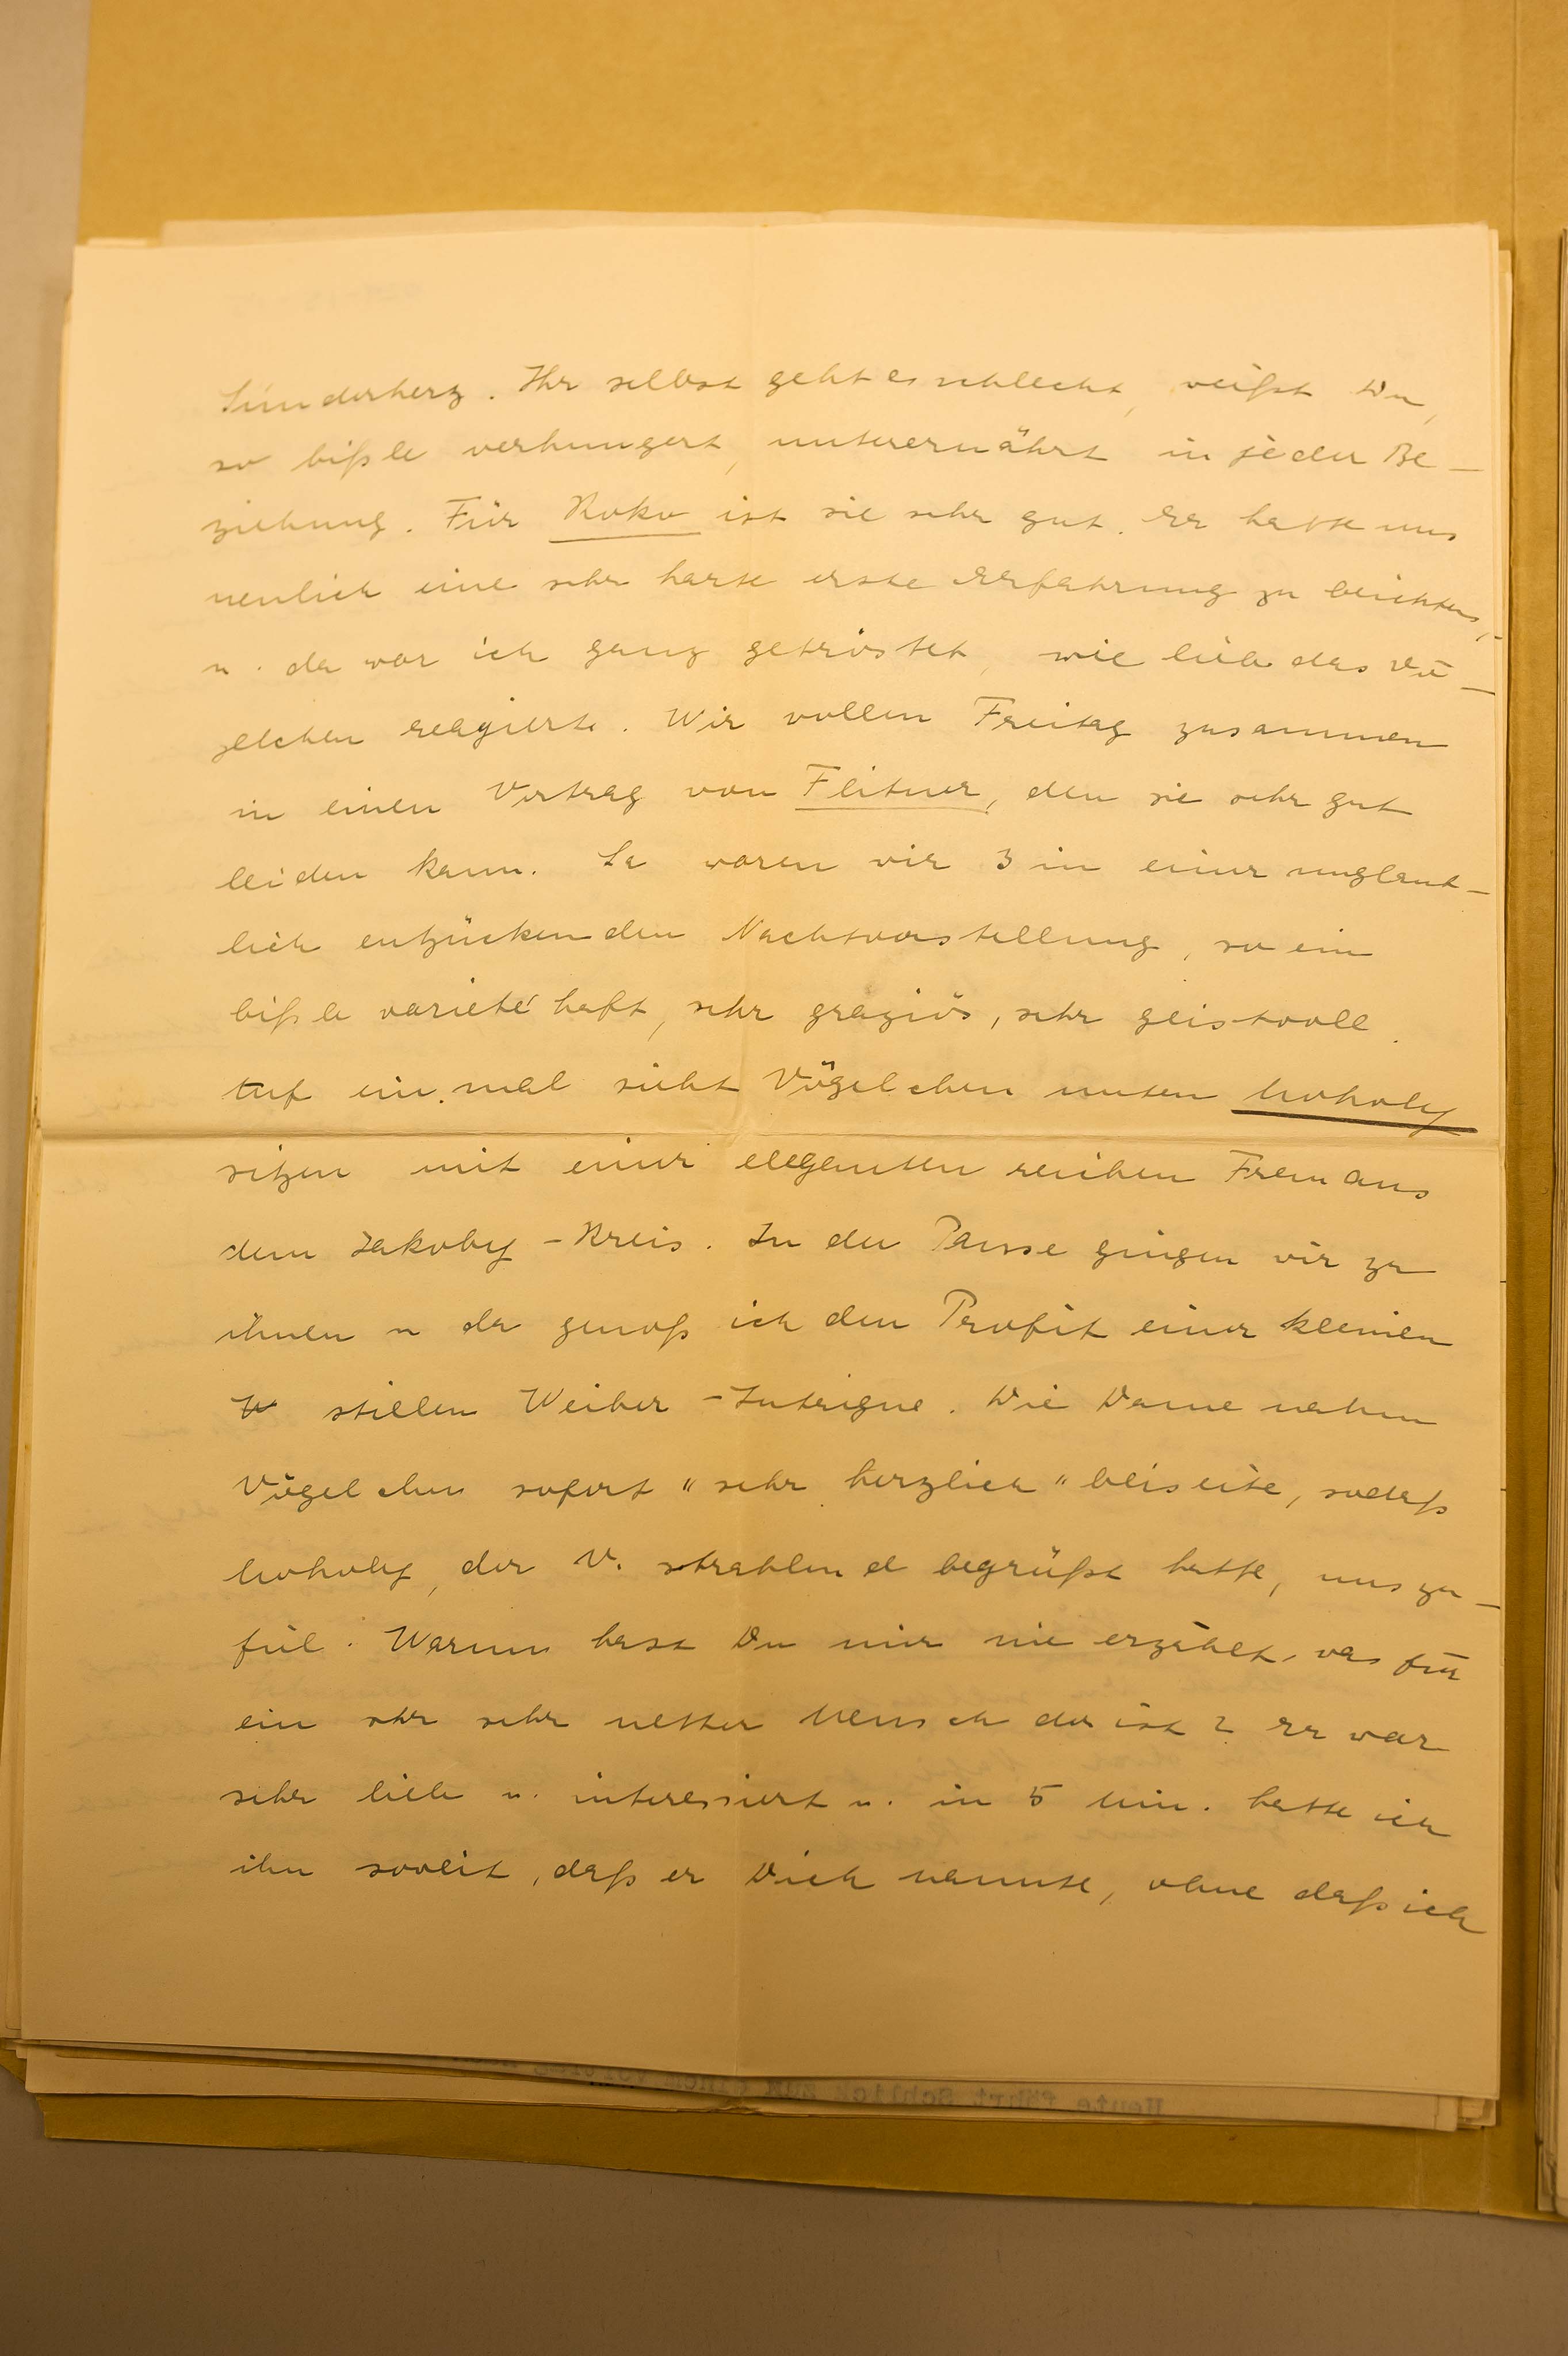 Sünderherz. Ihr selbst geht es schlecht, weißt Du,
so bißle verhungert, unterernährt in jeder Be-
ziehung. Für Roko ist sie sehr gut. Er hatte uns
neulich eine sehr harte erste Erfahrung zu beichten,
u. da war ich ganz getröstet, wie lieb das Vö-
gelchen reagierte. Wir wollen Freitag zusammen
in einen Vortrag von Flitner, den sie sehr gut
leiden kann. Sa waren wir 3 in einer unglaub-
lich entzückenden Nachtvorstellung, so ein
bißle varietéhaft, sehr graziös, sehr geistvoll.
Auf einmal sieht Vögelchen unten Moholy
sitzen mit einer eleganten reichen Frau aus
dem Jakoby-Kreis. In der Pause gingen wir zu
ihnen u da genoß ich den Profit einer kleinen
stillen Weiber-Intrigue. Die Dame nahm
Vögelchen sofort "sehr herzlich" beiseite, sodaß
Moholy, der V. strahlend begrüßt hatte, uns zu-
fiel. Warum hast Du mir nie erzählt, was für
ein sehr sehr netter Mensch das ist? Er war
sehr lieb u. interessiert u. in 5 Min. hatte ich
ihn soweit, daß er Dich nannte, ohne daß ich
Heute fährt Schlick zum einem Vortrag